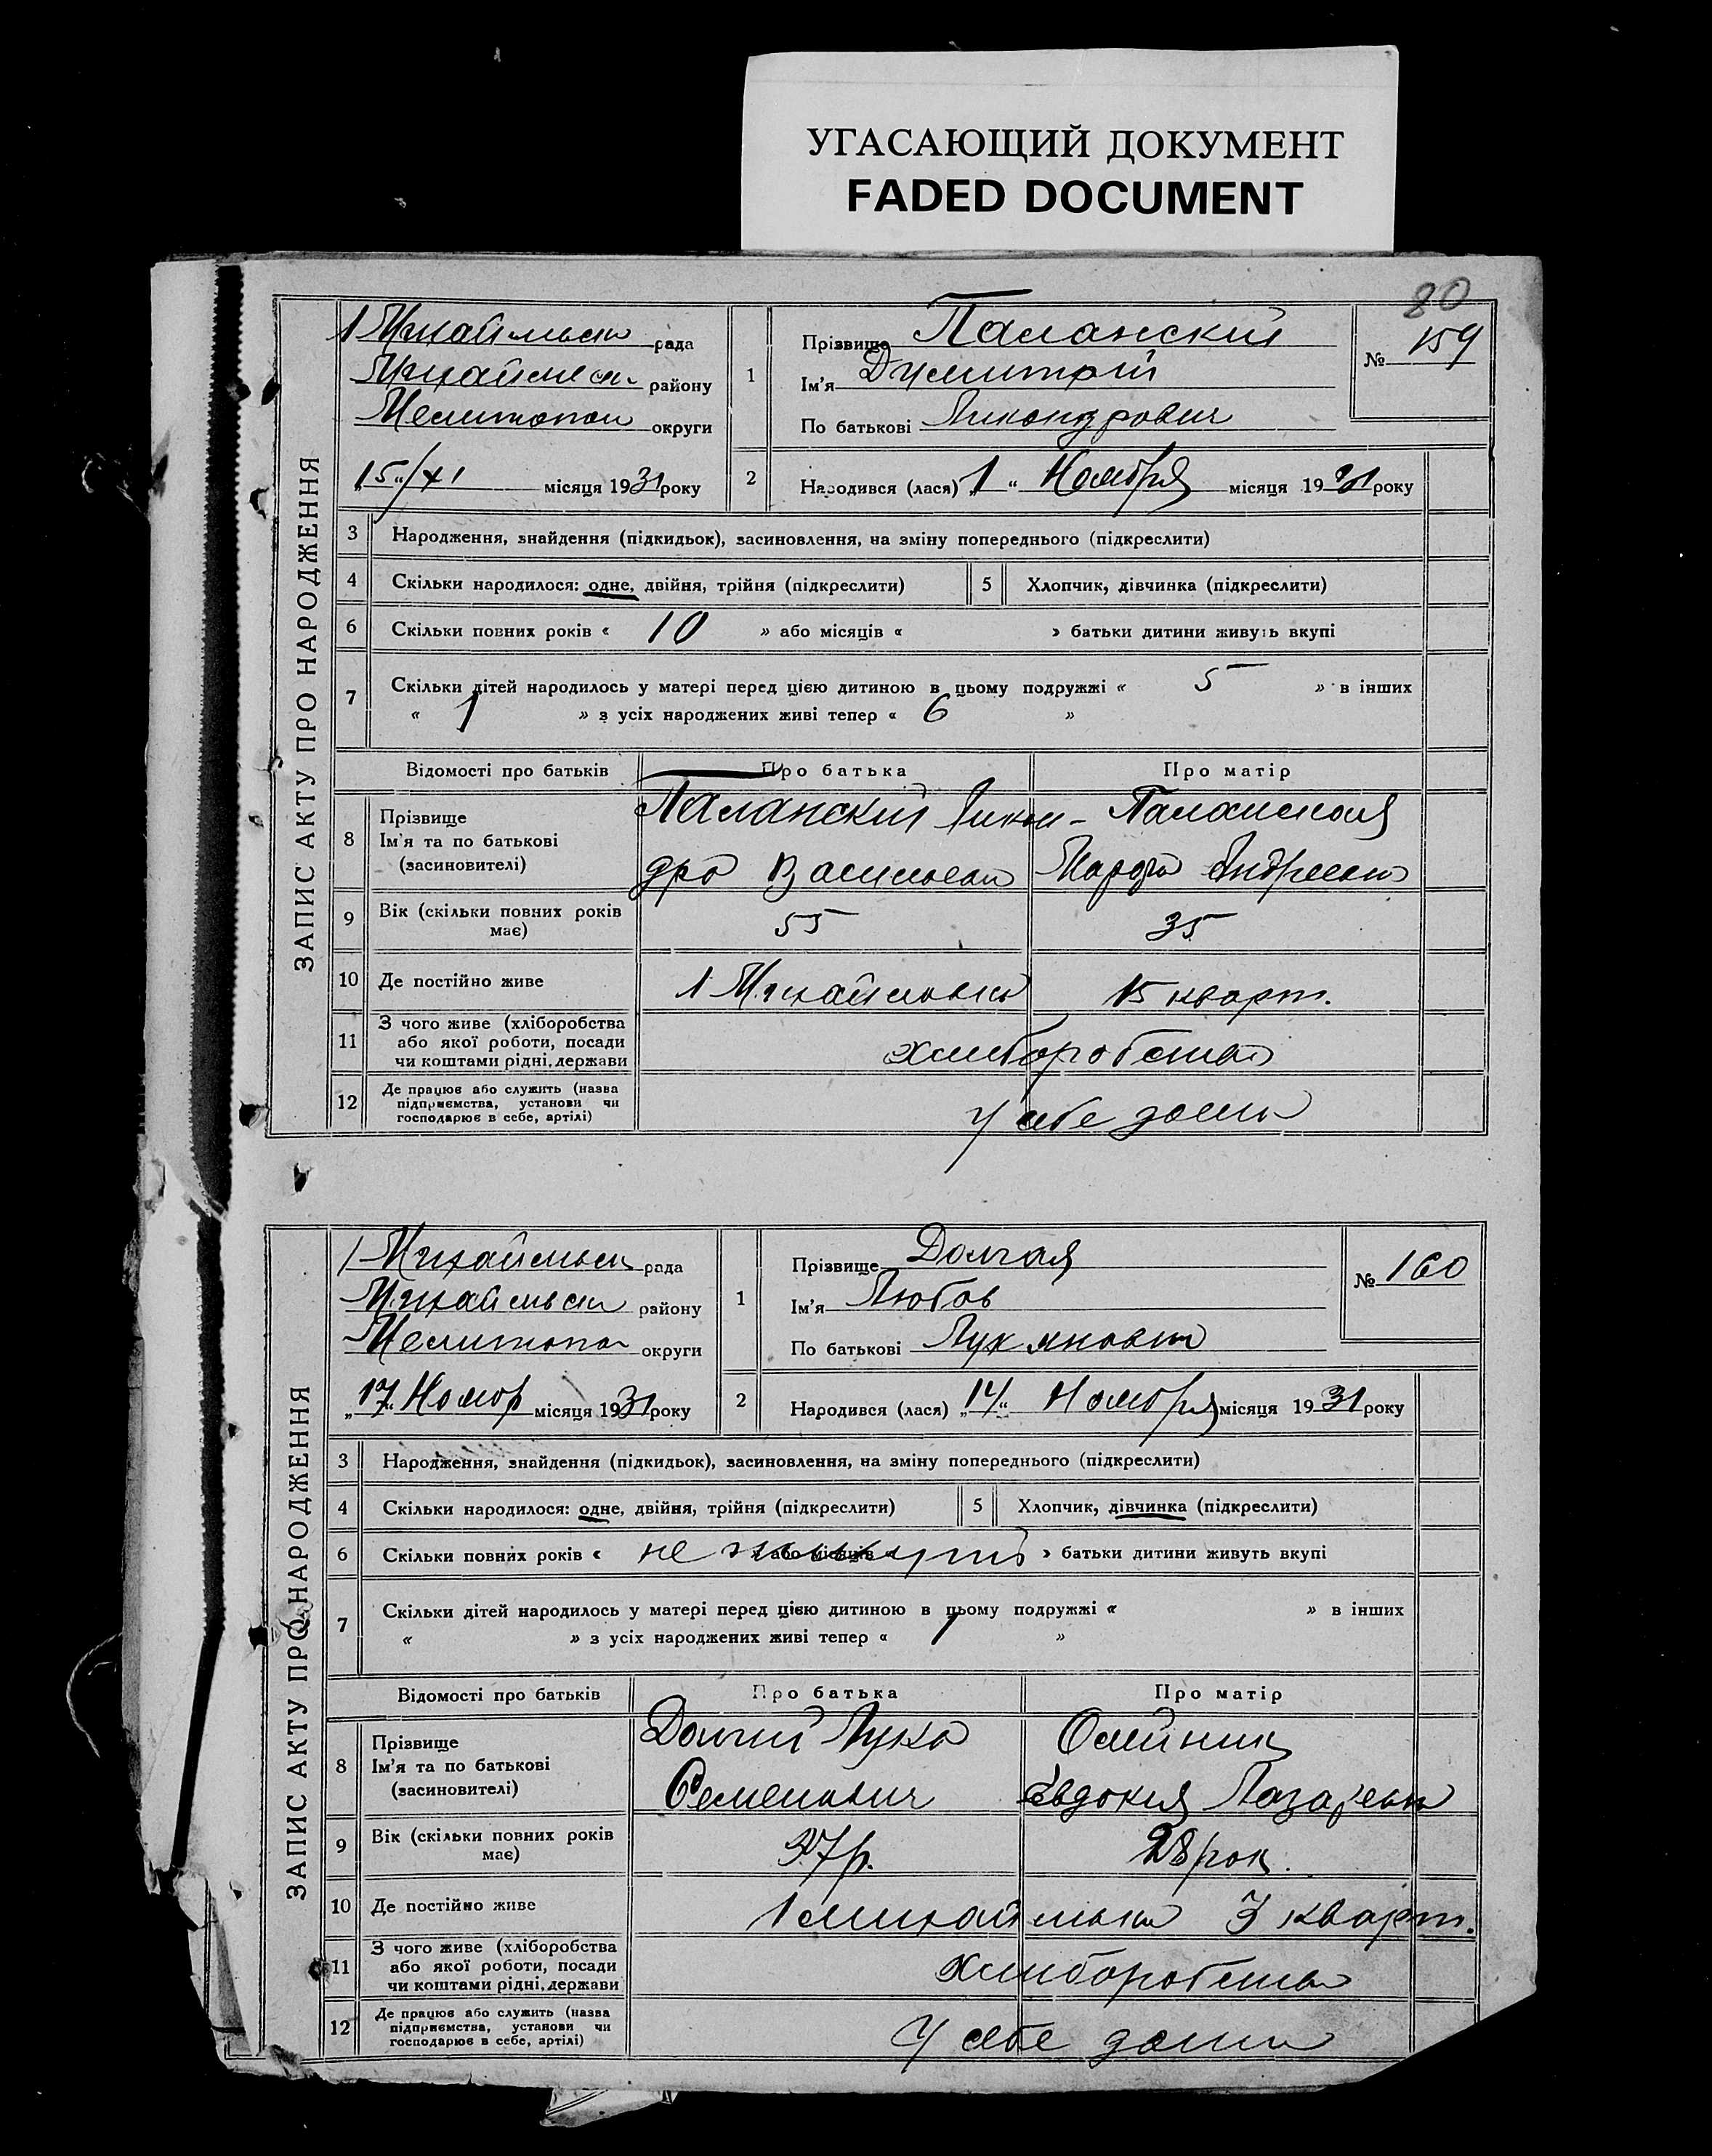 УГАСАЮЩИЙ ДОКУМЕНТ
FADED DOCUMENT
80
ЗАПИС АКТУ ПРО НАРОДЖЕННЯ
1 Михайлівськ рада
Михайлівськ району
Мелитопол округи
„15“/XI місяця 1931 року
1
Прізвище Паланский
Ім'я Димитрий
По батькові
№ 159
2
Народився (лася) „1“ Ноября місяця 1931 року
3 Народження, знайдення (підкидьок), засиновлення, на зміну попереднього (підкреслити)
4 Скільки народилося: одне, двійня, трійня (підкреслити) 5 Хлопчик, дівчинка (підкреслити)
6 Скільки повних років « 10 » або місяців « » батьки дитини живуть вкупі
7 Скільки дітей народилось у матері перед цією дитиною в цьому подружжі « 5 » в інших
« 1 » з усіх народжених живі тепер « 6 »
Відомості про батьків Про батька Про матір
8 Прізвище
Ім'я та по батькові
(засновителі)
Паланский
Паланская
Андреевн
9 Вік (скільки повних років має) 55 35
10 Де постійно живе 1 Михайловка 15 кварт.
11 З чого живе (хліборобства
або якої роботи, посади
чи коштами рідні, держави
хлиборобства
12 Де працює або служить (назва
підприємства, установи чи
господарює в себе, артілі)
У себе дома
ЗАПИС АКТУ ПРО НАРОДЖЕННЯ
1 Михайлівськ рада
Михайлівськ району
Мелитопол округи
„17“ Ноябр місяця 1931 року
1
Прізвище Долгая
Ім'я Любов
По батькові Лукяновна
№ 160
2
Народився (лася) „14“ Ноября місяця 1931 року
3 Народження, знайдення (підкидьок), засиновлення, на зміну попереднього (підкреслити)
4 Скільки народилося: одне, двійня, трійня (підкреслити) 5 Хлопчик, дівчинка (підкреслити)
6 Скільки повних років « не живуть » або місяців « » батьки дитини живуть вкупі
7 Скільки дітей народилось у матері перед цією дитиною в цьому подружжі « » в інших
« » з усіх народжених живі тепер « 1 »
Відомості про батьків Про батька Про матір
8 Прізвище
Ім'я та по батькові
(засиновителі)
Долгий Лука
Семенович
Олейник
Евдокия Лазаревн
9 Вік (скільки повних років має) 37р. 28 рок.
10 Де постійно живе 1 Михайловка 3 кварт.
11 З чого живе (хліборобства
або якої роботи, посади
чи коштами рідні, держави
Хлиборобства
12 Де працює або служить (назва
підприємства, установи чи
господарює в себе, артілі)
У себе дома